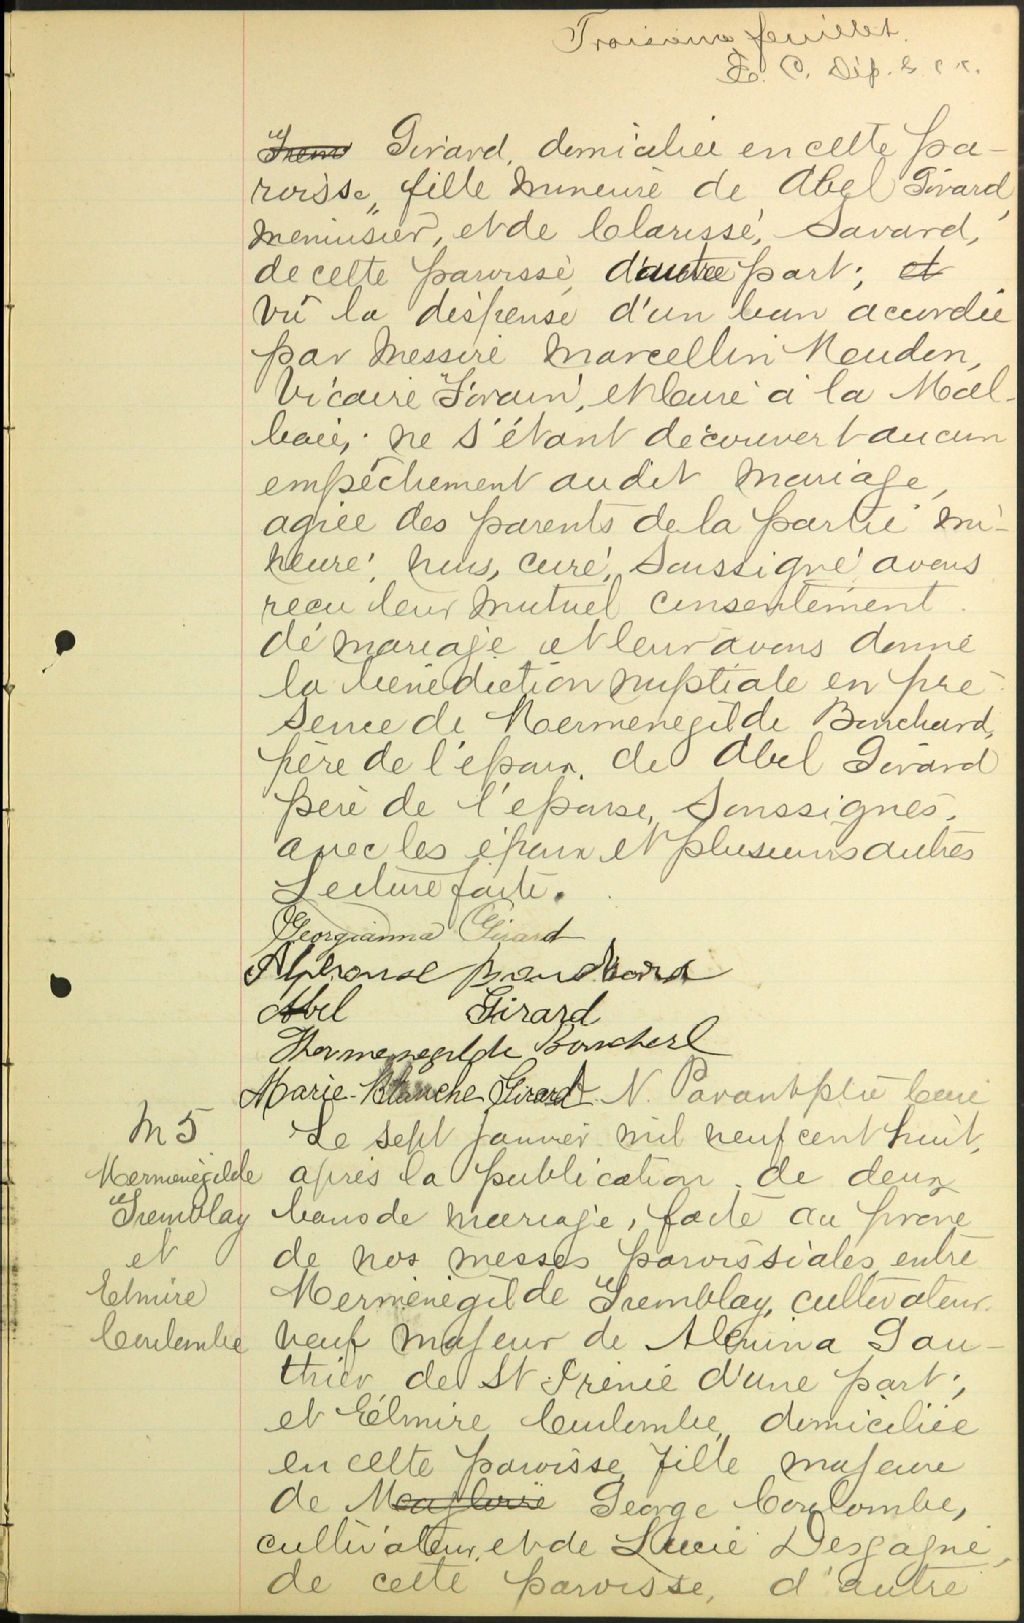 Troisième feuillet.
E. C. Dép. P. C. S.
Girard, domiciliée en cette pa-
roisse, fille mineure de Abel Girard,
menuisier, et de Clarisse, Savard,
de cette paroisse, d'autre part; et
vû la dispense d'un ban accordée
par Messire Marcellin Heudon,
Vicaire Forain, et Curé à la Mal-
baie, ne s'étant découvert aucun
empêchement audit mariage,
agrée des parents de la partie mi-
neure, nous, curé, soussigné avons
reçu leur mutuel consentement
de mariage et leur avons donné
la bénédiction nuptiale en pré-
sence de Hermenegilde Bouchard,
père de l'époux, de Abel Girard
père de l'épouse, soussignés,
avec les époux et plusieurs autres
Lecture faite.
Georgianna Girard
Alphonse Bouchard
Abel Girard
Hermenegilde Boucherd
Marie-Blanche Girard N. Parant ptre Curé
M 5
Hermenégilde
Tremblay
et
Elmire
Coulombe
Le sept janvier mil neuf cent huit,
après la publication de deux
bans de mariage, faite au prone
de nos messes paroissiales entre
Hermenégilde Tremblay, cultivateur
veuf majeur de Alvina Gau-
thier de St Irénée d'une part;
et Elmire Coulombe, domiciliée
en cette paroisse, fille majeure
de George Coulombe,
cultivateur, et de Lucie Desgagné,
de cette paroisse, d'autre